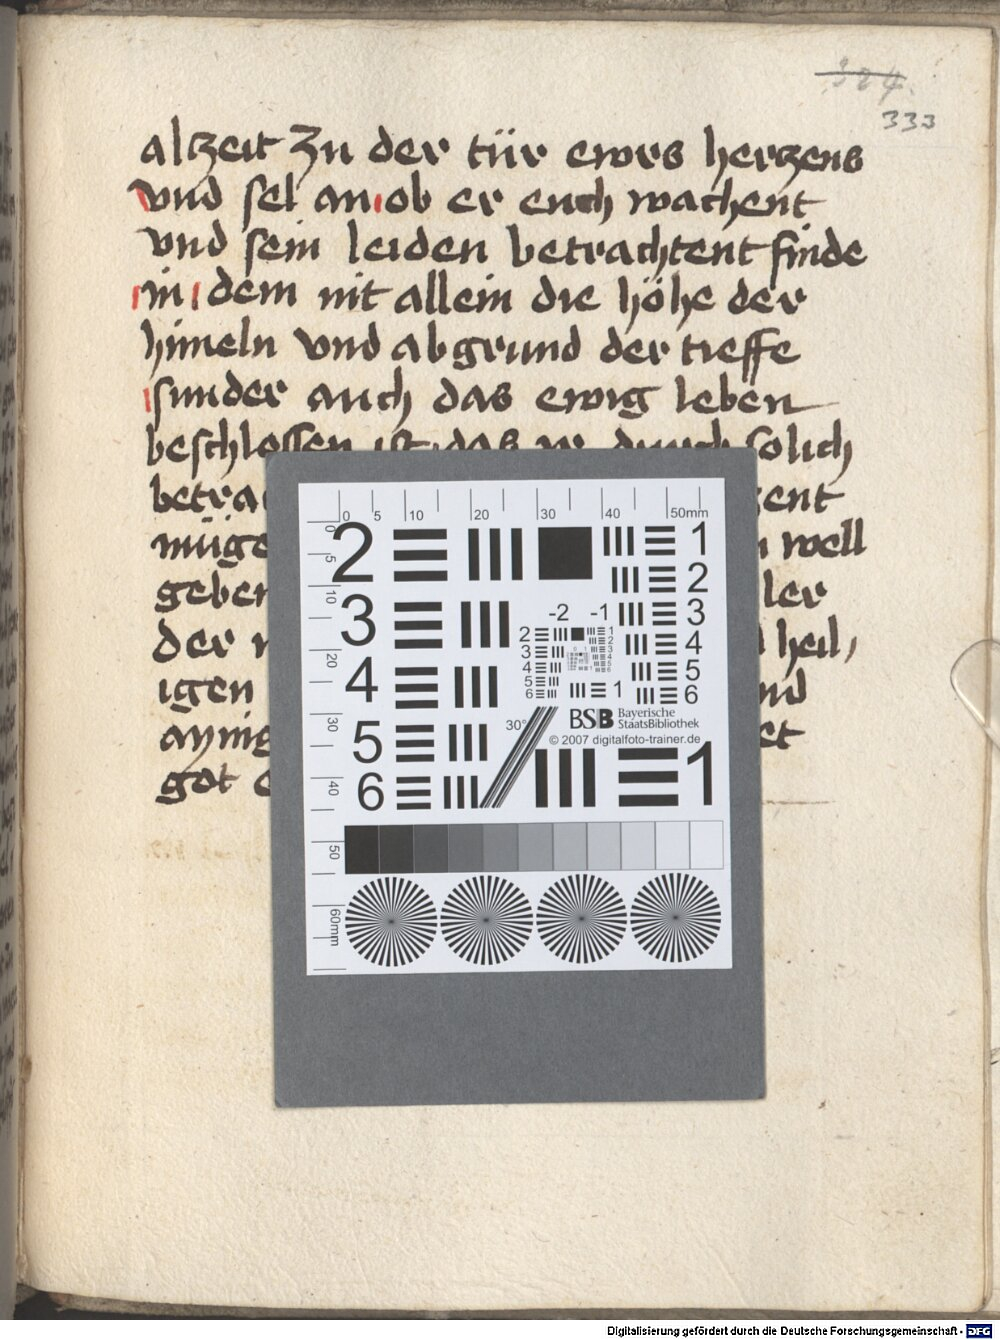 324.
333
alczeit Zu der tür ewrs herczens
vnd sel an ob er euch wachent
vnd sein leiden betrachtent finde
in dem nit allein die höhe der
himeln vnd abgrund der tieffe
sunder auch das ewig leben
beschlossen ist das ir durch solich
betra ent
müge well
geben ler
der heil,
igen nd
aynig et
got
0 5 10 20 30 40 50mm
0 5 10 20 30 40 50 60mm
2 1
2
3 -2 -1 3
4 4
5 5
6 6
1
30°
BSB Bayerische StaatsBibliothek
© 2007 digitalfoto-trainer.de
1
Digitalisierung gefördert durch die Deutsche Forschungsgemeinschaft - DFG